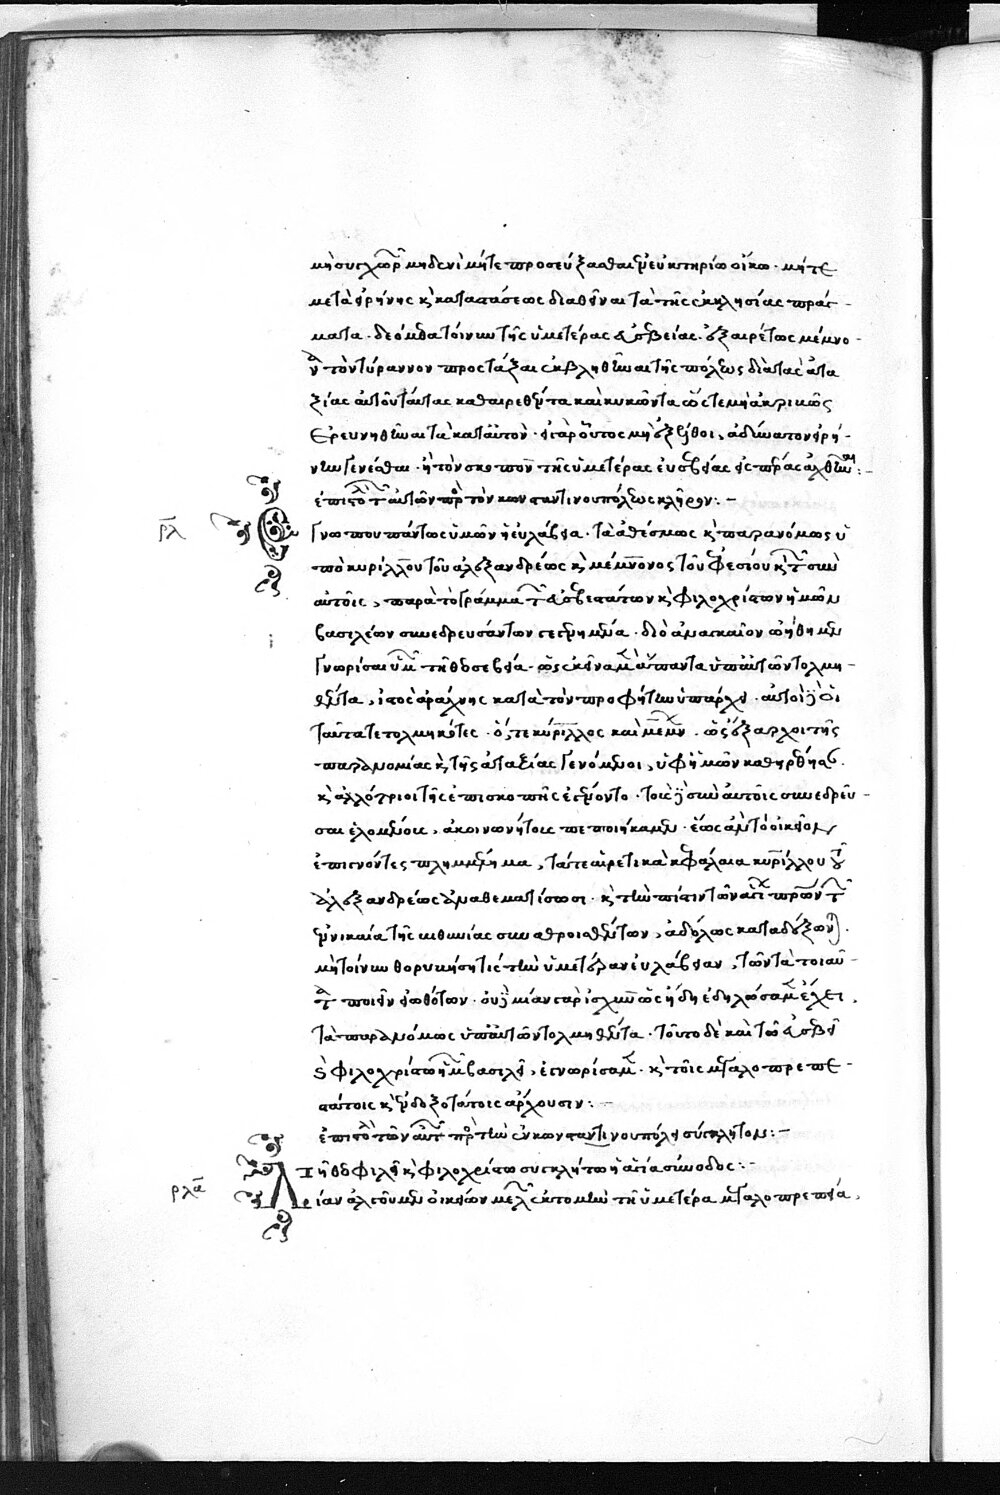 μὴ συγχωρῆ μηδενὶ μήτε προσεύξασθαι ἐν εὐκτηρίω οἴκω· μήτε
μετὰ εἰρήνης καὶ καταστάσεως διαθεῖναι τὰ τῆς ἐκκλησίας πράγ-
ματα· δεόμεθα τοίνυν τῆς ὑμετέρας εὐσεβείας· ἐξαιρέτως μέμνο-
να τὸν τύραννον προστάξαι ἐκβληθῆναι τῆς πόλεως διὰ τὰς ἀτα
ξίας αὐτοῦ ταύτας καθαιρεθέντα καὶ κυκῶντα ὥστε μὴ ἀκριβῶς
ἐρευνηθῆναι τὰ κατ' αὐτόν· εἰ γὰρ οὗτος μὴ ἐξέλθοι, ἀδύνατον εἰρή-
νην γενέσθαι· ἢ τὸν σκοπὸν τῆς ὑμετέρας εὐσεβείας εἰς πέρας ἀχθῆναι:-
ἐπιστολὴ τῶν αὐτῶν πρὸς τὸν κωνσταντινουπόλεως κλῆρον:-
ρλ Ἔγνω που πάντως ὑμῶν ἡ εὐλάβεια· τὰ ἀθέσμως καὶ παρανόμως ὑ
πὸ κυρίλλου τοῦ ἀλεξανδρέως καὶ μέμνονος τοῦ ἐφεσίου καὶ τῶν σὺν
αὐτοῖς, παρὰ τὸ γράμμα τῶν εὐσεβεστάτων καὶ φιλοχρίστων ἡμῶν
βασιλέων συνεδρευσάντων γεγενημένα· διὸ ἀναγκαῖον ὠήθημεν
γνωρίσαι ὑμῶν τῆ θεοσεβεία· ὡς ἐκεῖνα μὲν ἅπαντα ὑπ' αὐτῶν τολμη-
θέντα, ἱστὸς ἀράχνης κατὰ τὸν προφήτην ὑπάρχει· αὐτοὶ δὲ οἱ
ταῦτα τετολμηκότες· ὅ, τε κύριλλος καὶ μέμνων· ὡς ἔξαρχοι τῆς
παρανομίας καὶ τῆς ἀταξίας γενόμενοι, ὑφ' ἡμῶν καθηρέθησαν·
καὶ ἀλλότριοι τῆς ἐπισκοπῆς ἐγένοντο· τοὺς δὲ σὺν αὐτοῖς συνεδρεῦ-
σαι ἑλομένους, ἀκοινωνήτους πεποιήκαμεν· ἕως ἂν τὸ οἰκεῖον
ἐπιγνόντες πλημμέλημα, τά τε αἱρετικὰ κεφάλαια κυρίλλου τοῦ
ἀλεξανδρέως ἀναθεματίσωσι· καὶ τὴν πίστιν τῶν ἁγίων πατέρων τῶν
ἐν νικαία τῆς βιθυνίας συναθροισθέντων, ἀδόλως καταδέξωνται·
μὴ τοίνυν θορυβήση τις τὴν ὑμετέραν εὐλάβειαν, τῶν τὰ τοιαῦ-
τα ποιεῖν εἰωθότων· οὐδεμίαν γὰρ ἰσχὺν ὡς ἤδη ἐδηλώσαμεν ἔχει,
τὰ παρανόμως ὑπ' αὐτῶν τολμηθέντα· τοῦτο δὲ καὶ τῶ εὐσεβεῖ
καὶ φιλοχρίστω ἡμῶν βασιλεῖ, ἐγνωρίσαμεν· καὶ τοῖς μεγαλοπρεπε-
στάτοις καὶ ἐνδοξοτάτοις ἄρχουσιν:-
ἐπιστολὴ τῶν αὐτῶν πρὸς τὴν ἐν κωνσταντινουπόλει σύγκλητον:-
τῆ θεοφιλεῖ καὶ φιλοχρίστω συγκλήτω ἡ ἁγία σύνοδος:-
ρλα Λίαν ἀλγοῦμεν οἰκείων μελῶν ἐκτομὴν τῆ ὑμετέρα μεγαλοπρεπεία,